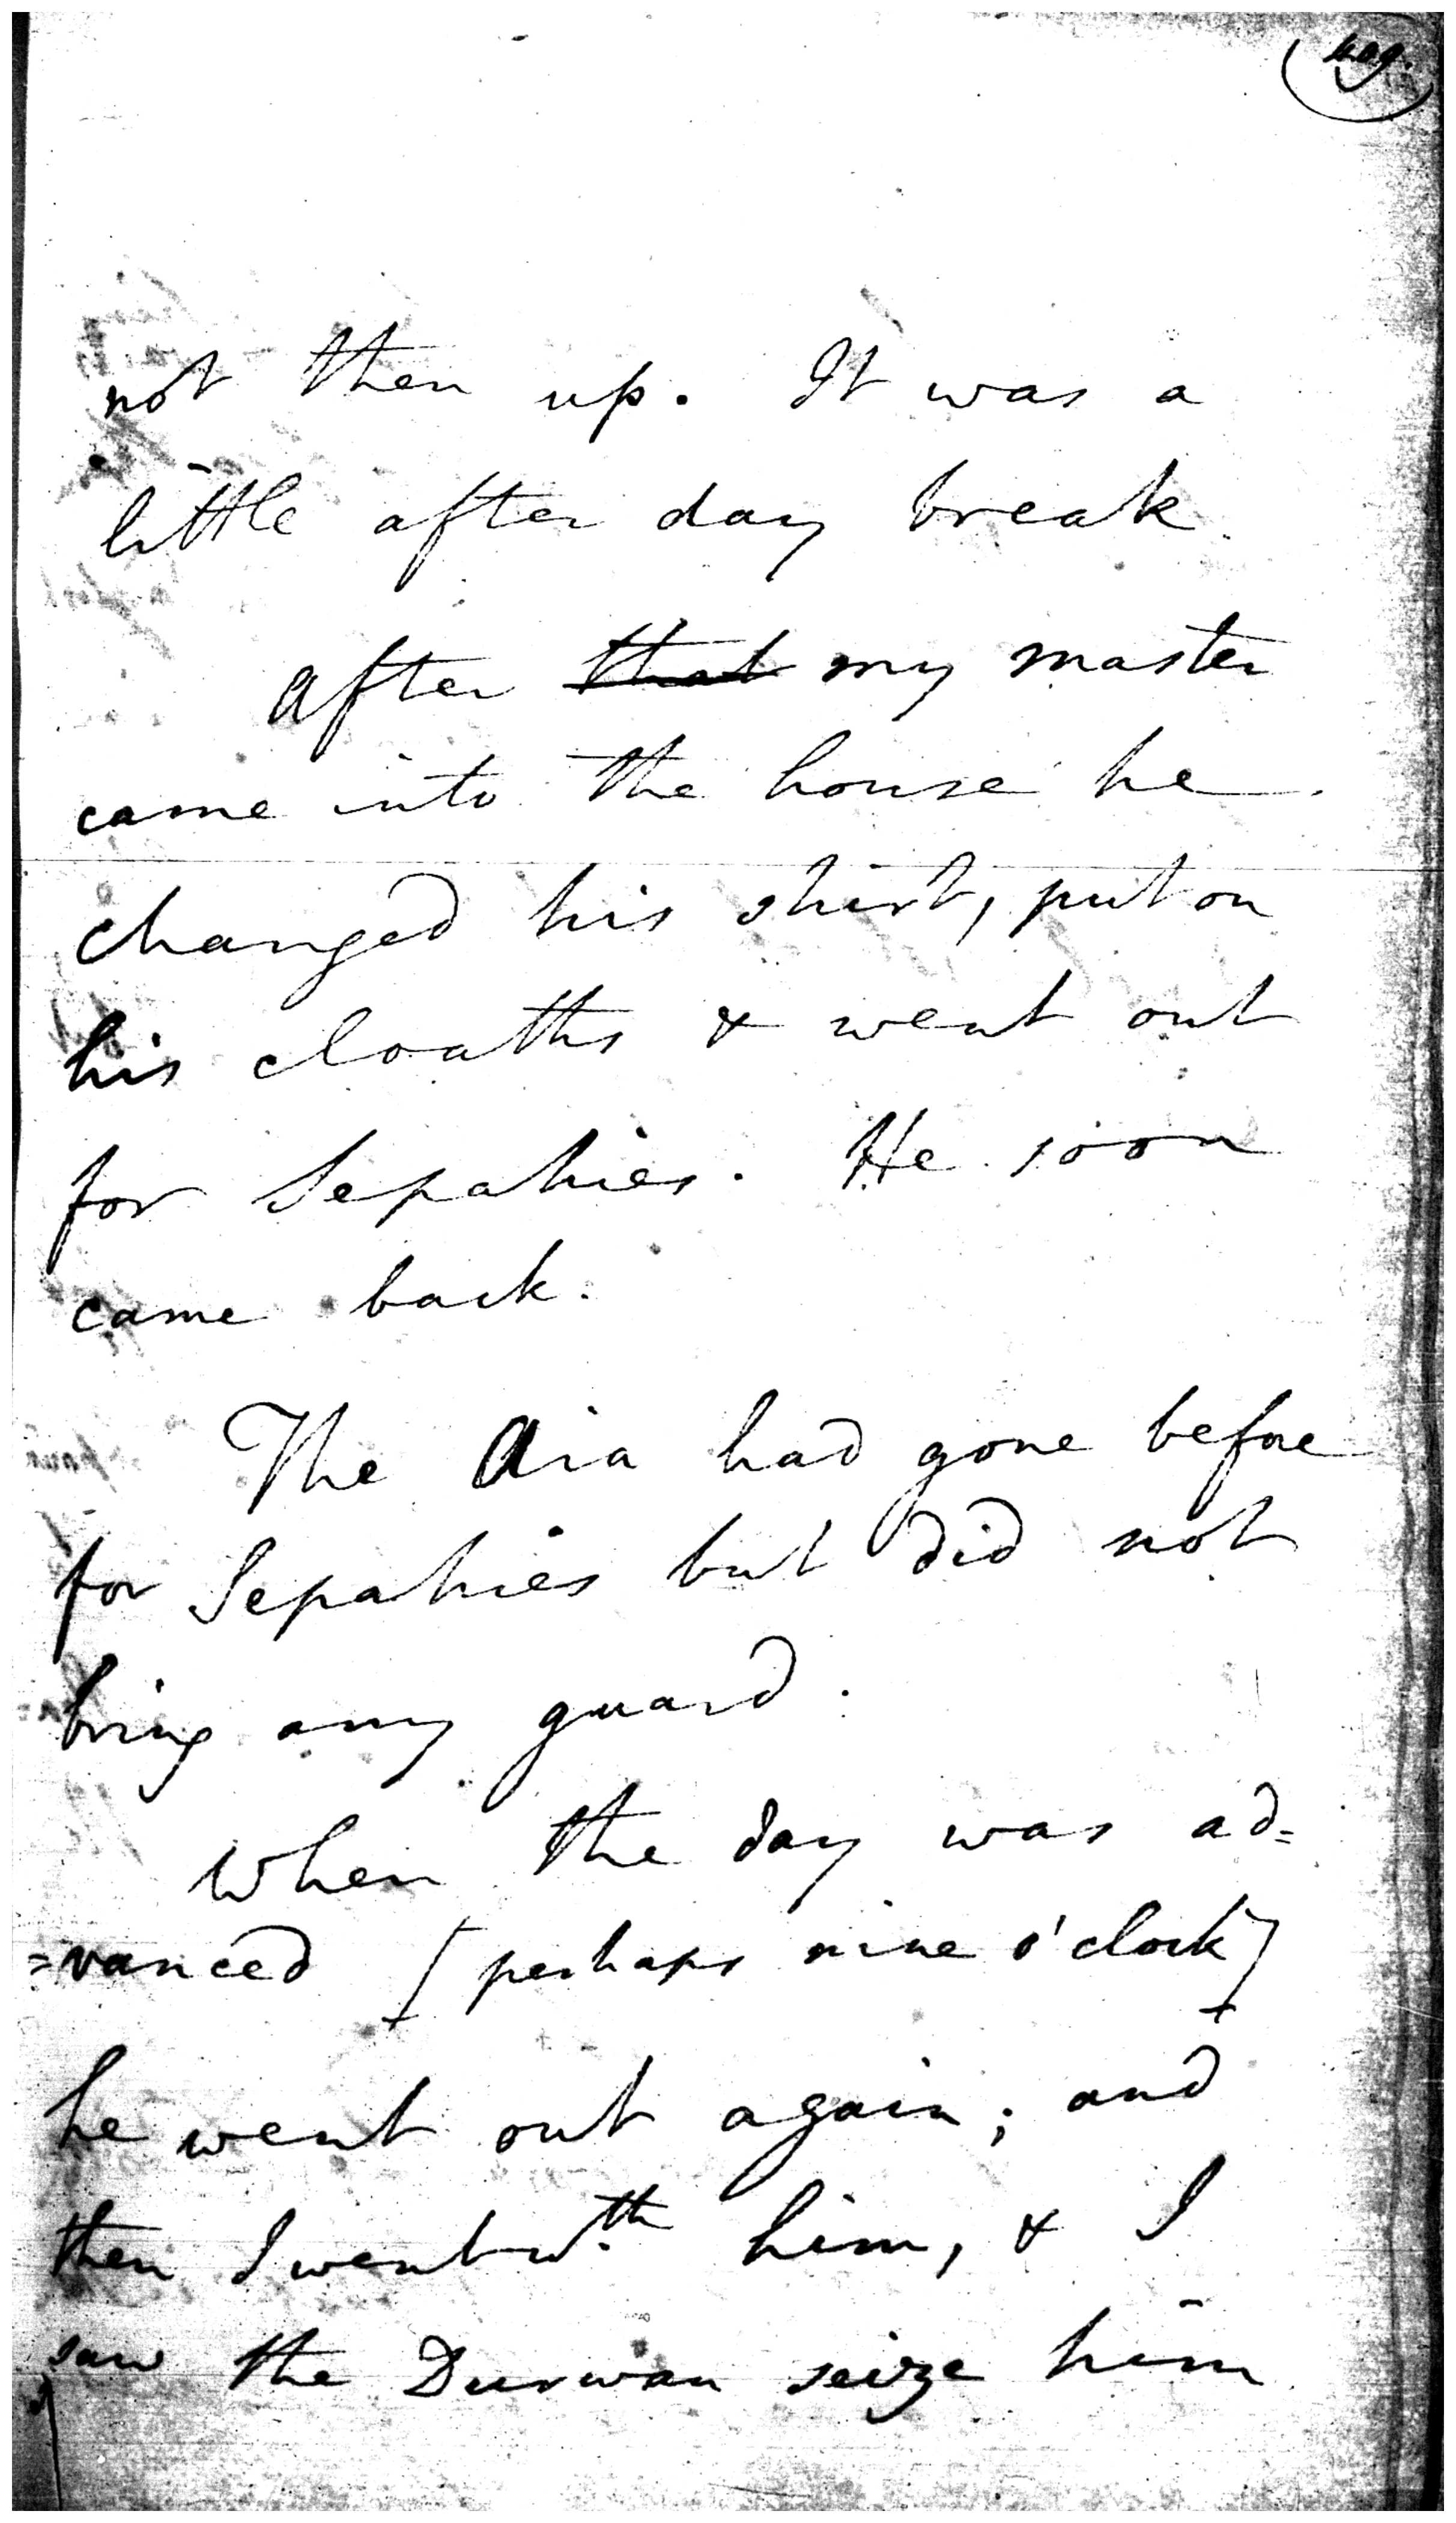 not then up. It was a
little after day break.
After ~~that~~ my master
came into the house he
changed his shirt, put on
his cloaths & went out
for Sepahies. He soon
came back.
The Aia had gone before
for Sepahies but did not
bring any guard.
When the day was ad=
=vanced [perhaps nine o'clock]
he went out again; and
then I went wth him, & I
saw the Durwan seize him